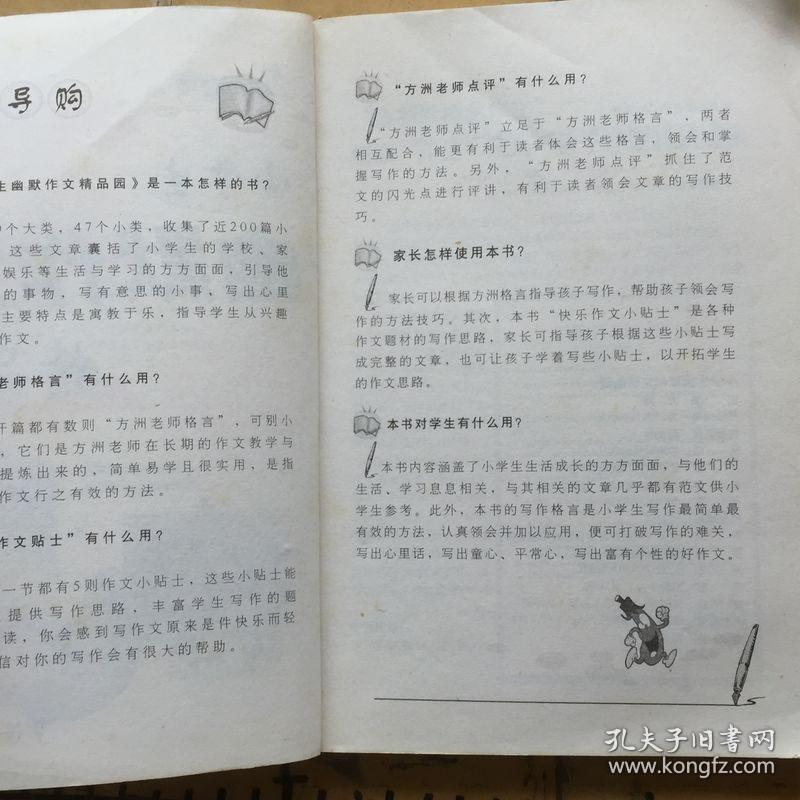 导购
生幽默作文精品园》是一本怎样的书？
个大类，47个小类，收集了近200篇小
这些文章囊括了小学生的学校、家
娱乐等生活与学习的方方面面，引导他
的事物，写有意思的小事，写出心里
主要特点是寓教于乐，指导学生从兴趣
作文。
老师格言”有什么用？
开篇都有数则“方洲老师格言”，可别小
，它们是方洲老师在长期的作文教学与
提炼出来的，简单易学且很实用，是指
作文行之有效的方法。
作文贴士”有什么用？
一节都有5则作文小贴士，这些小贴士能
提供写作思路，丰富学生写作的题
读，你会感到写作文原来是件快乐而轻
信对你的写作会有很大的帮助。
“方洲老师点评”有什么用？
“方洲老师点评”立足于“方洲老师格言”，两者
相互配合，能更有利于读者体会这些格言，领会和掌
握写作的方法。另外，“方洲老师点评”抓住了范
文的闪光点进行评讲，有利于读者领会文章的写作技
巧。
家长怎样使用本书？
家长可以根据方洲格言指导孩子写作，帮助孩子领会写
作的方法技巧。其次，本书“快乐作文小贴士”是各种
作文题材的写作思路，家长可指导孩子根据这些小贴士写
成完整的文章，也可让孩子学着写些小贴士，以开拓学生
的作文思路。
本书对学生有什么用？
本书内容涵盖了小学生生活成长的方方面面，与他们的
生活、学习息息相关，与其相关的文章几乎都有范文供小
学生参考。此外，本书的写作格言是小学生写作最简单最
有效的方法，认真领会并加以应用，便可打破写作的难关，
写出心里话，写出童心、平常心，写出富有个性的好作文。
孔夫子旧书网
www.kongfz.com